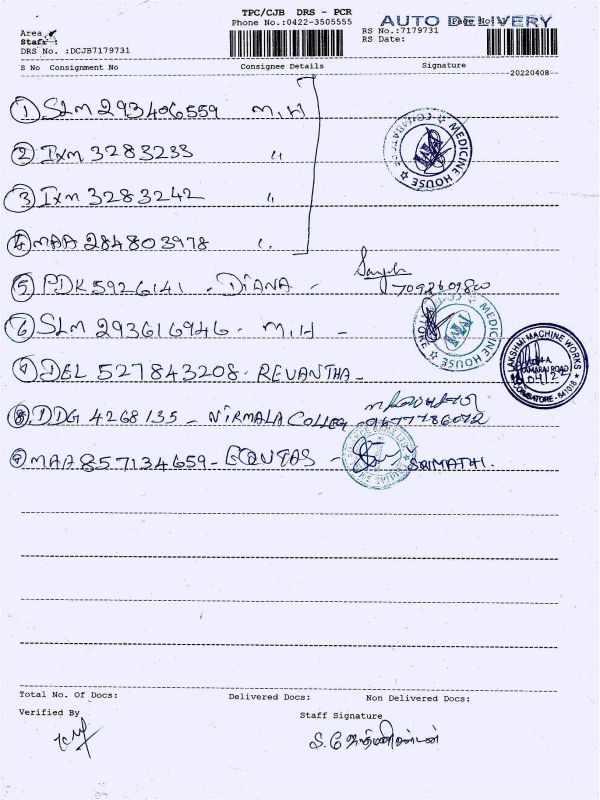 TPC/CJB DRS - PCR
Phone No.:0422-3505555
AUTO DELIVERY
Page No:
Area
Staff
DRS No. :DCJB7179731
RS No.:7179731
RS Date:
S No Consignment No Consignee Details Signature
20220408
1 SLM 293406559 M.H
2 IXM 3283233 "
3 IXM 3283242 "
4 MAA 284803978
MEDICINE HOUSE
5 PDK 5926141 - DIANA -
7092609800
6 SLM 293616946 - M.H -
MEDICINE HOUSE
7 DEL 527843208 - REVANTHA -
LAKSHMI MACHINE WORKS
COIMBATORE - 641018
8 DDG 4268135 - NIRMALA COLLEG -
9 MAA 857134659 - EQUTAS - SRIMATHI.
Total No. Of Docs: Delivered Docs: Non Delivered Docs:
Verified By Staff Signature